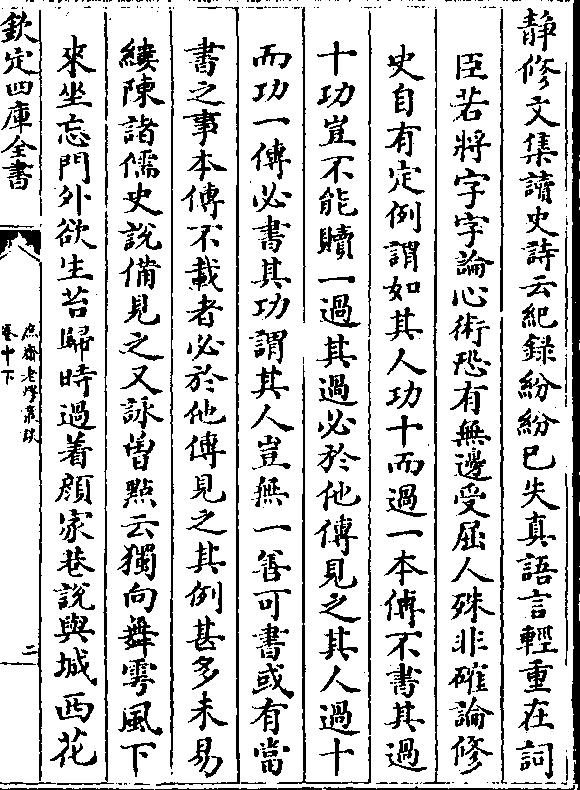 静修文集讀史詩云紀錄紛紛已失真語言輕重在詞
臣若將字字論心術恐有無邊受屈人殊非確論修
史自有定例謂如其人功十而過一本傳不書其過
十功豈不能贖一過其過必於他傳見之其人過十
而功一傳必書其功謂其人豈無一善可書或有當
書之事本傳不載者必於他傳見之其例甚多未易
縷陳諸儒史說備見之又詠曾點云獨向舞雩風下
來坐忘門外欲生苔歸時過着顔家巷說與城西花
欽定四庫全書
庶齋老學叢談
卷十下
二